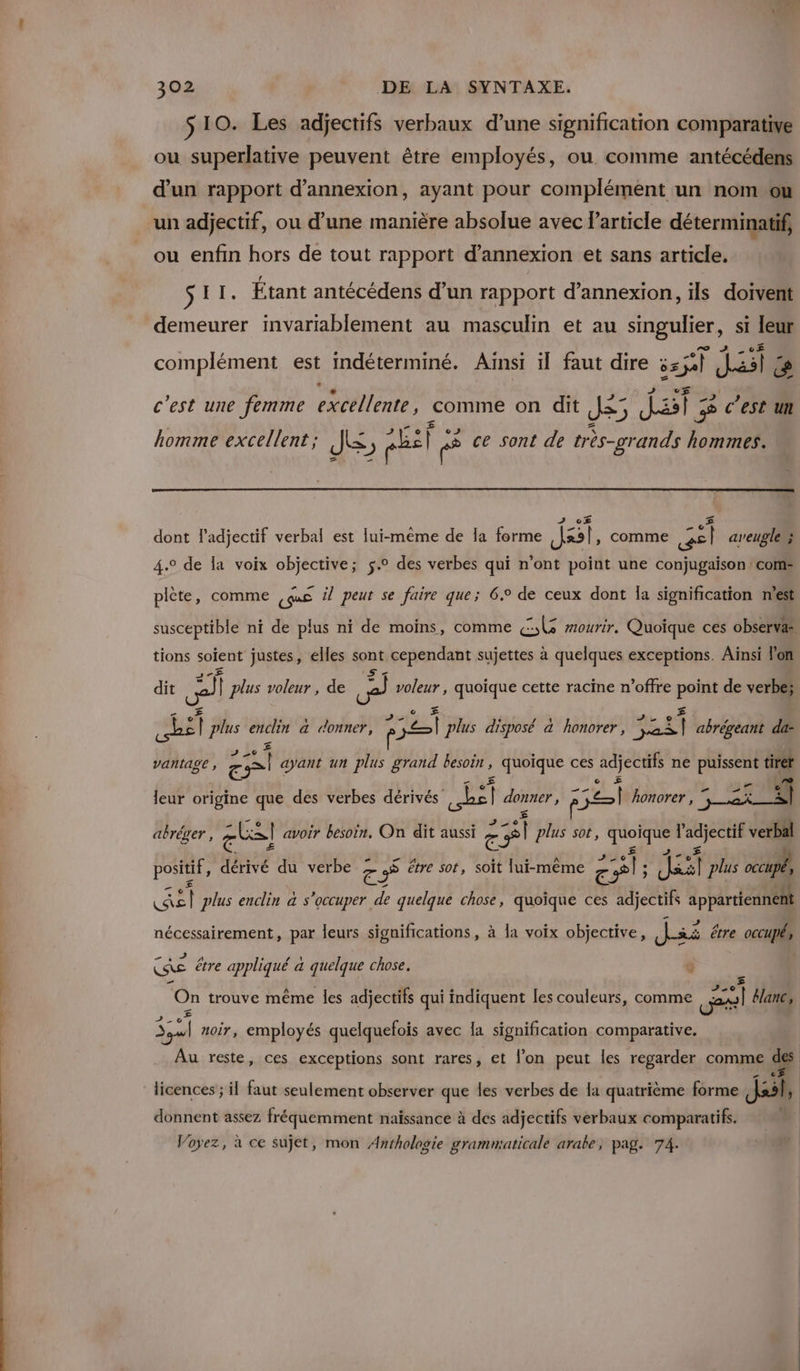 302 DE LA SYNTAXE.
§ 10. Les adjectifs verbaux d'une signification comparative
ou superlative peuvent être employés, ou comme antécédens
d'un rapport d'annexion, ayant pour complément un nom ou
un adjectif, ou d'une manière absolue avec l'article déterminatif,
ou enfin hors de tout rapport d'annexion et sans article.
§ 11. Étant antécédens d'un rapport d'annexion, ils doivent
demeurer invariablement au masculin et au singulier, si leur
complément est indéterminé. Ainsi il faut dire هِيَ أَفْضَلُ ٱمْرَأَةٍ
c'est une femme excellente, comme on dit هُوَ أَفْضَلُ رَجُلٍ c'est un
homme excellent; هُمْ أَعْظَمُ رِجَالٍ ce sont de très-grands hommes.
dont l'adjectif verbal est lui-même de la forme أَفْعَلُ, comme أَعْمَى aveugle;
4.° de la voix objective; 5.° des verbes qui n'ont point une conjugaison com-
plète, comme عَسَى il peut se faire que; 6.° de ceux dont la signification n'est
susceptible ni de plus ni de moins, comme مَاتَ mourir. Quoique ces observa-
tions soient justes, elles sont cependant sujettes à quelques exceptions. Ainsi l'on
dit أَلَصُّ plus voleur, de لِصٌّ voleur, quoique cette racine n'offre point de verbe;
أَعْطَى plus enclin à donner, أَكْرَمُ plus disposé à honorer, أَخْصَرُ abrégeant da-
vantage, أَحْوَجُ ayant un plus grand besoin, quoique ces adjectifs ne puissent tirer
leur origine que des verbes dérivés أَعْطَى donner, أَكْرَمَ honorer, إِخْتَصَرَ
abréger, إِحْتَاجَ avoir besoin. On dit aussi أَهْوَجُ plus sot, quoique l'adjectif verbal
positif, dérivé du verbe هَوِجَ être sot, soit lui-même أَهْوَجُ; أَشْغَلُ plus occupé,
أَعْنَى plus enclin à s'occuper de quelque chose, quoique ces adjectifs appartiennent
nécessairement, par leurs significations, à la voix objective, شُغِلَ être occupé,
عُنِيَ être appliqué à quelque chose.
On trouve même les adjectifs qui indiquent les couleurs, comme أَبْيَضُ blanc,
أَسْوَدُ noir, employés quelquefois avec la signification comparative.
Au reste, ces exceptions sont rares, et l'on peut les regarder comme des
licences; il faut seulement observer que les verbes de la quatrième forme أَفْعَلَ,
donnent assez fréquemment naissance à des adjectifs verbaux comparatifs.
Voyez, à ce sujet, mon Anthologie grammaticale arabe, pag. 74.